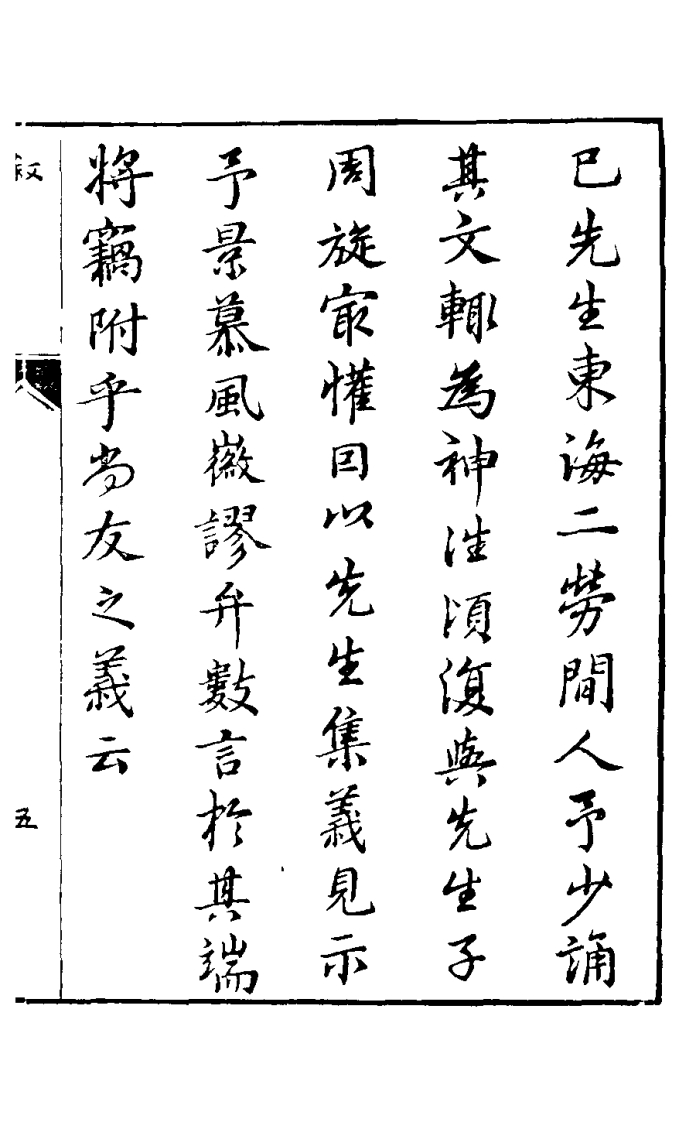 已先生東海二勞間人予少誦
其文輙為神往頃復與先生子
周旋宷懽因以先生集義見示
予景慕風徽謬弁數言於其端
將竊附乎尚友之義云
叙
五